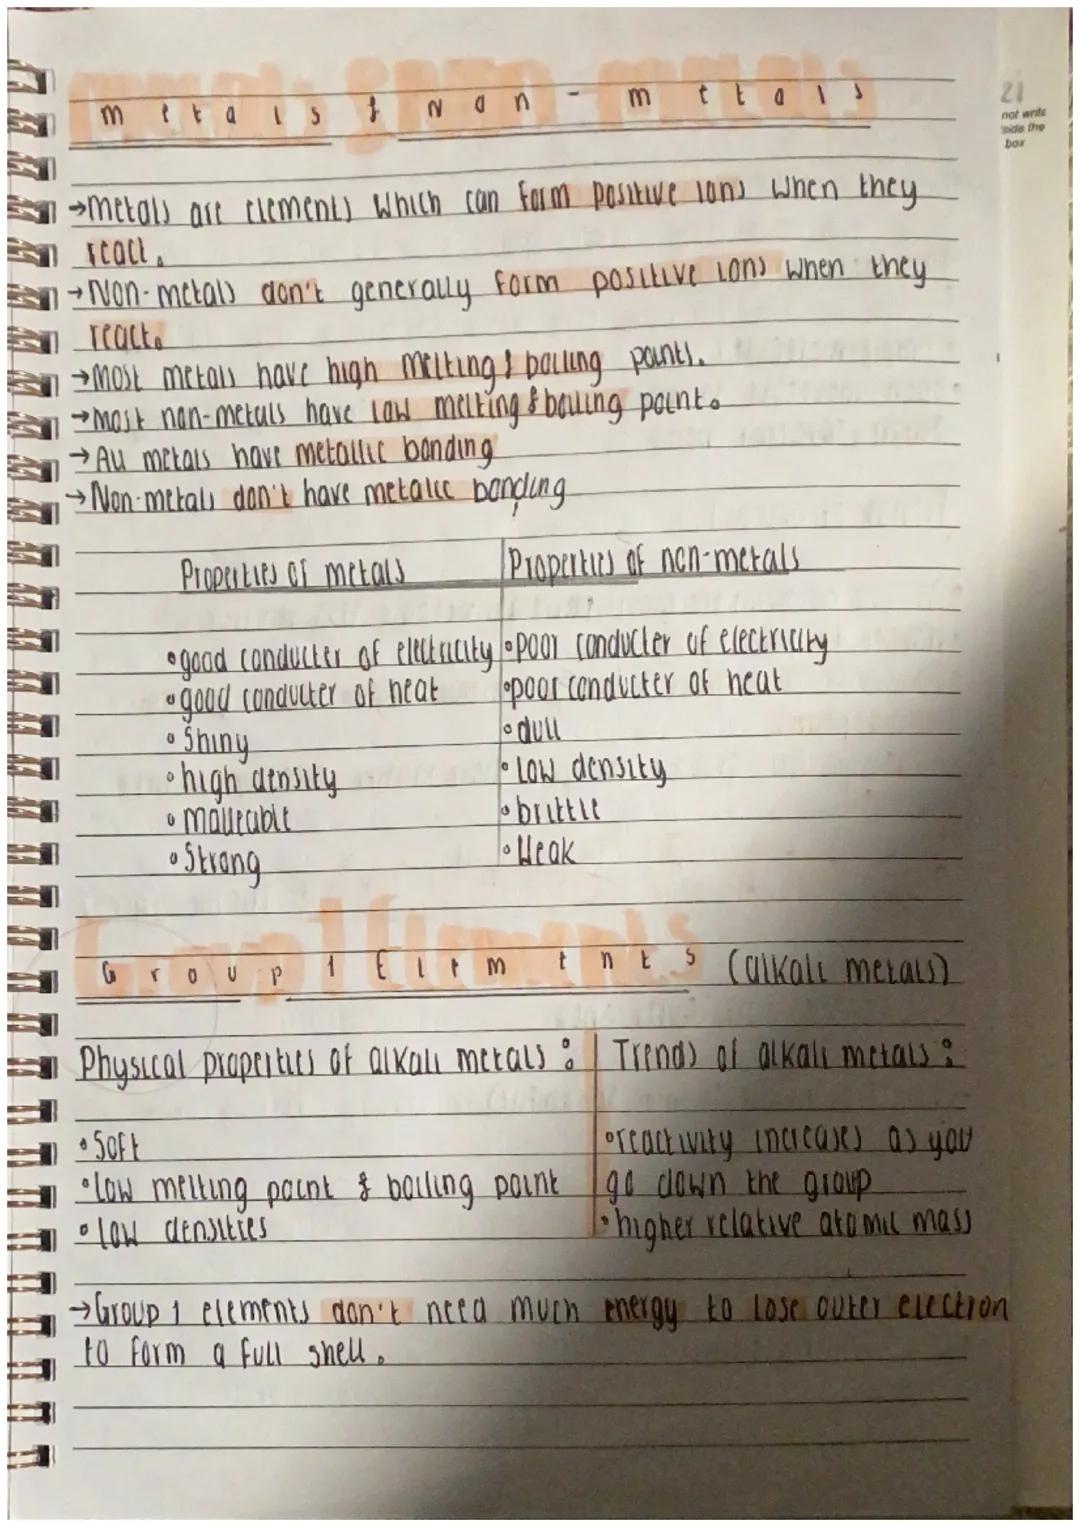 metals & Non-metals
21
not write
side the
box
→metals are elements which can form positive ions when they
react.
→Non-metals don't generally form positive ions when they
react.
→Most metals have high melting & boiling points.
→most non-metals have low melting & boiling point.
→All metals have metallic bonding
→Non-metals don't have metalic bonding
Properties of metals
Properties of non-metals
•good conducter of electricity
•poor conducter of electricity
•good conducter of heat
•poor conducter of heat
•Shiny
•dull
•high density
•low density
•malleable
•brittle
•Strong
•Weak
Group 1 Elements (alkali metals)
Physical properties of alkali metals:
Trends of alkali metals:
•Soft
•reactivity increases as you
•low melting point & boiling point
go down the group
•low densities
•higher relative atomic mass
→Group 1 elements don't need much energy to lose outer electron
to form a full shell.